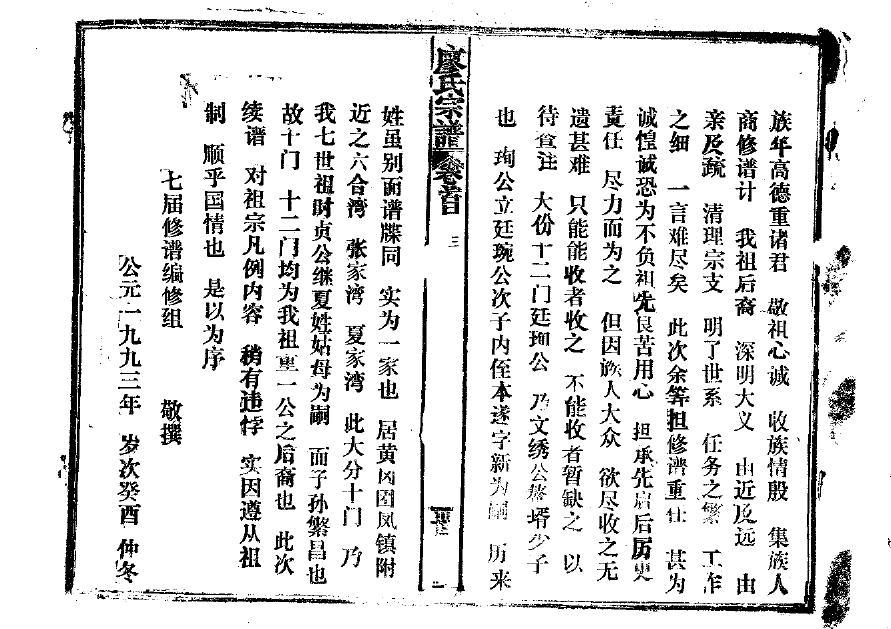 族年高德重诸君 敬祖心诚 收族情殷 集族人
商修谱计 我祖后裔 深明大义 由近及远 由
亲及疏 清理宗支 明了世系 任务之繁 工作
之细 一言难尽矣 此次余等担修谱重任 甚为
诚惶诚恐为不负祖先良苦用心 担承先启后历史
责任 尽力而为之 但因族人大众 欲尽收之无
遗甚难 只能能收者收之 不能收者暂缺之 以
待查注 大份十二门廷珣公 乃文绣公螯壻少子
也 珣公立廷琬公次子内侄本遂字新为嗣 历来
廖氏宗谱 卷首 三
姓虽别而谱牒同 实为一家也 居黄冈团凤镇附
近之六合湾 张家湾 夏家湾 此大分十门 乃
我七世祖时贞公继夏姓姑母为嗣 而子孙繁昌也
故十门 十二门均为我祖重一公之后裔也 此次
续谱 对祖宗凡例内容 稍有违悖 实因遵从祖
制 顺乎国情也 是以为序
七届修谱编修组 敬撰
公元一九九三年 岁次癸酉 仲冬